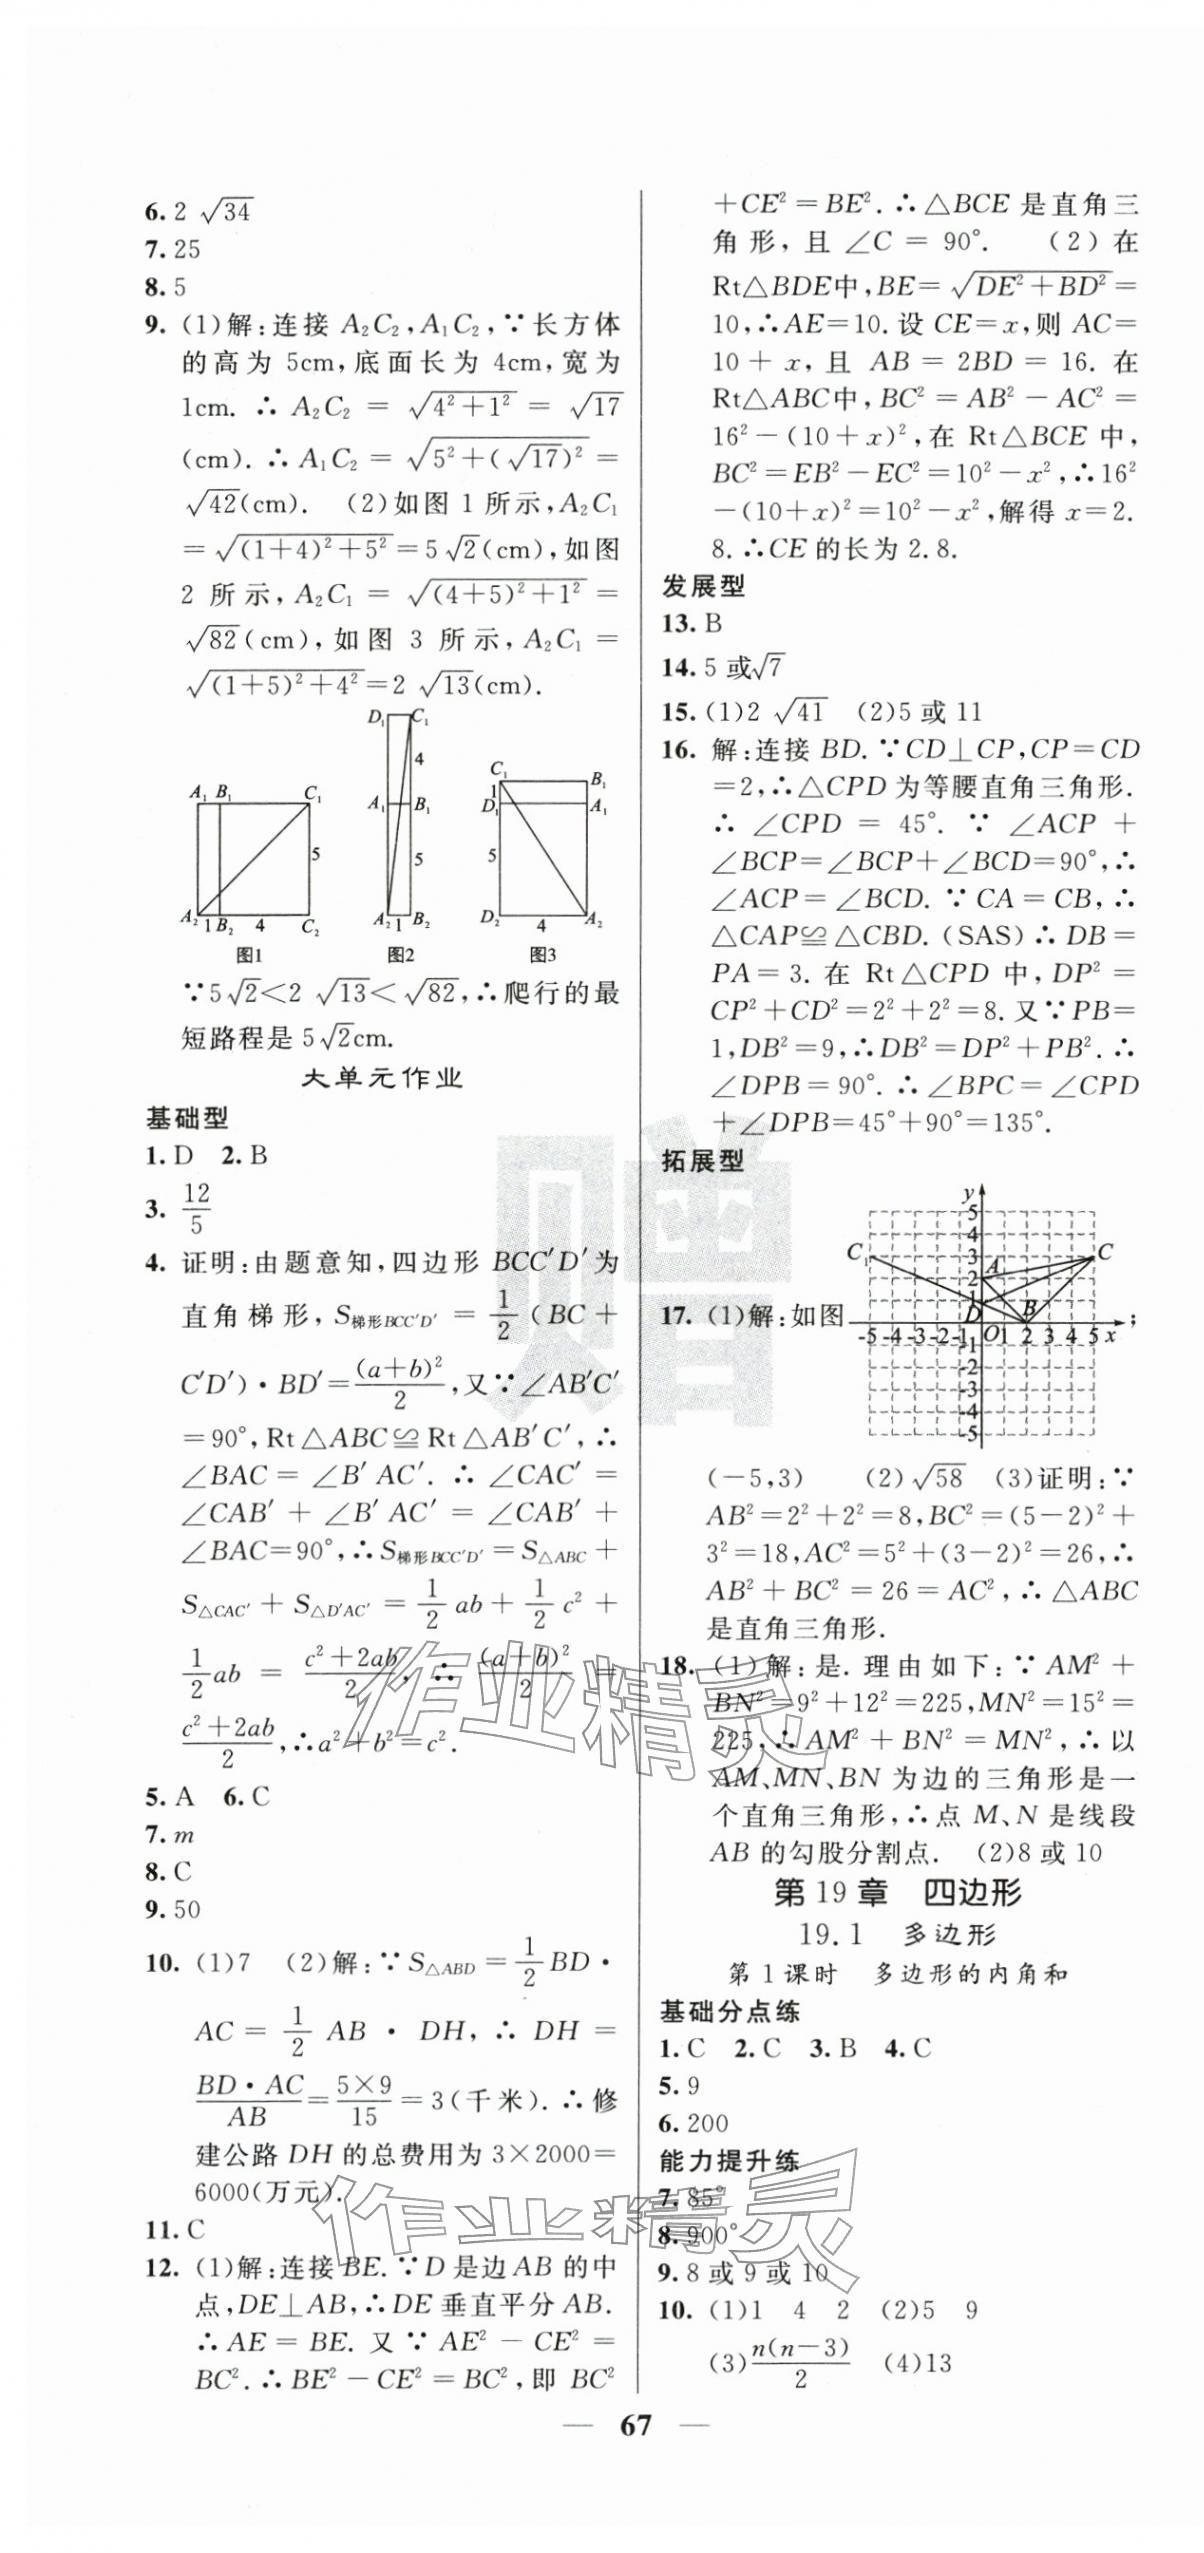 6. 2 √34
7. 25
8. 5
9. (1)解:连接 A₂C₂,A₁C₂,∵长方体
的高为 5cm,底面长为 4cm,宽为
1cm. ∴ A₂C₂ = √(4²+1²) = √17
(cm). ∴ A₁C₂ = √(5²+(√17)²) =
√42(cm). (2)如图 1 所示,A₂C₁
=√((1+4)²+5²)=5√2(cm),如图
2 所示,A₂C₁ = √((4+5)²+1²) =
√82(cm),如图 3 所示,A₂C₁ =
√((1+5)²+4²)=2 √13(cm).
A₁ B₁ C₁ 5 A₂ 1 B₂ 4 C₂
图1
D₁ C₁ 4 A₁ B₁ 5 A₂ 1 B₂
图2
C₁ B₁ 1 D₁ A₁ 5 D₂ 4 A₂
图3
∵5√2<2 √13<√82,∴爬行的最
短路程是 5√2cm.
大单元作业
基础型
1. D 2. B
3. 12/5
4. 证明:由题意知,四边形 BCC′D′为
直角梯形,S梯形BCC′D′ = 1/2 (BC+
C′D′)·BD′=(a+b)²/2,又∵∠AB′C′
=90°,Rt△ABC≌Rt△AB′C′,∴
∠BAC = ∠B′AC′. ∴ ∠CAC′ =
∠CAB′ + ∠B′AC′ = ∠CAB′ +
∠BAC=90°,∴S梯形BCC′D′=S△ABC+
S△CAC′ + S△D′AC′ = 1/2 ab + 1/2 c² +
1/2 ab = (c²+2ab)/2, ∴ (a+b)²/2 =
(c²+2ab)/2,∴a²+b²=c².
5. A 6. C
7. m
8. C
9. 50
10. (1)7 (2)解:∵S△ABD=1/2 BD·
AC= 1/2 AB · DH, ∴ DH =
BD·AC/AB=5×9/15=3(千米). ∴修
建公路 DH 的总费用为 3×2000=
6000(万元).
11. C
12. (1)解:连接BE. ∵D是边AB的中
点,DE⊥AB,∴DE垂直平分AB.
∴AE=BE. 又∵AE²-CE²=
BC². ∴BE²-CE²=BC²,即 BC²
+CE²=BE². ∴△BCE 是直角三
角形,且∠C=90°. (2)在
Rt△BDE中,BE=√(DE²+BD²)=
10,∴AE=10. 设 CE=x,则 AC=
10+x,且 AB=2BD=16. 在
Rt△ABC中,BC²=AB²-AC²=
16²-(10+x)²,在 Rt△BCE 中,
BC²=EB²-EC²=10²-x²,∴16²
-(10+x)²=10²-x²,解得 x=2.
8. ∴CE的长为 2.8.
发展型
13. B
14. 5 或√7
15. (1)2 √41 (2)5 或 11
16. 解:连接 BD. ∵CD⊥CP,CP=CD
=2,∴△CPD为等腰直角三角形.
∴ ∠CPD = 45°. ∵ ∠ACP +
∠BCP=∠BCP+∠BCD=90°,∴
∠ACP=∠BCD. ∵CA=CB,∴
△CAP≌△CBD. (SAS)∴DB=
PA=3. 在 Rt△CPD 中,DP²=
CP²+CD²=2²+2²=8. 又∵PB=
1,DB²=9,∴DB²=DP²+PB². ∴
∠DPB=90°. ∴∠BPC=∠CPD
+∠DPB=45°+90°=135°.
拓展型
y 5 4 3 2 1 C₁ A C D B
17. (1)解:如图 ;
-5 -4 -3 -2 -1 O 1 2 3 4 5 x
-1 -2 -3 -4 -5
(-5,3) (2)√58 (3)证明:∵
AB²=2²+2²=8,BC²=(5-2)²+
3²=18,AC²=5²+(3-2)²=26,∴
AB²+BC²=26=AC²,∴△ABC
是直角三角形.
18. (1)解:是. 理由如下:∵AM²+
BN²=9²+12²=225,MN²=15²=
225,∴AM²+BN²=MN²,∴以
AM、MN、BN 为边的三角形是一
个直角三角形,∴点 M、N 是线段
AB 的勾股分割点. (2)8 或 10
第 19 章 四边形
19.1 多边形
第 1 课时 多边形的内角和
基础分点练
1. C 2. C 3. B 4. C
5. 9
6. 200
能力提升练
7. 85°
8. 900°
9. 8 或 9 或 10
10. (1)1 4 2 (2)5 9
(3)n(n-3)/2 (4)13
— 67 —
赠
作业精灵
作业精灵